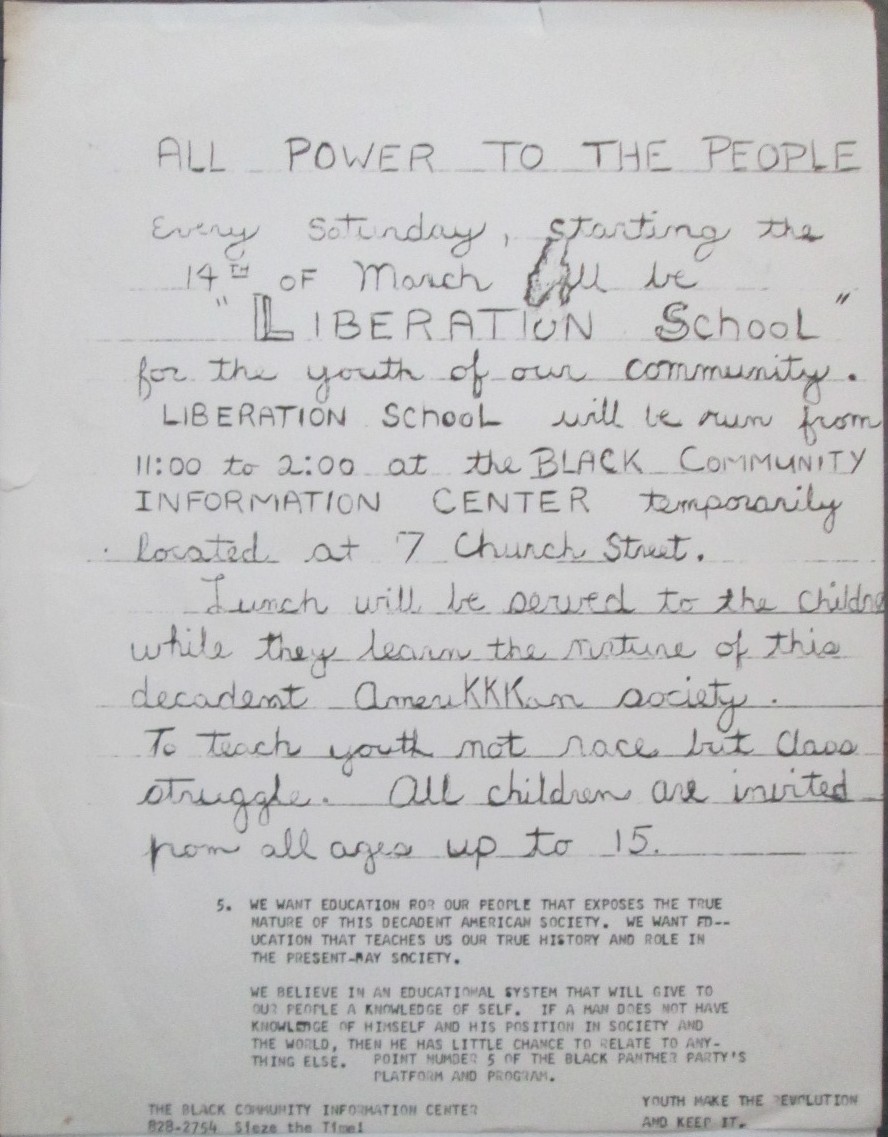 ALL POWER TO THE PEOPLE
Every Saturday, starting the
14TH OF March will be
"LIBERATION School"
for the youth of our community.
LIBERATION School will be run from
11:00 to 2:00 at the BLACK COMMUNITY
INFORMATION CENTER temporarily
located at 7 Church Street.
Lunch will be served to the childre
while they learn the nature of this
decadent AmeriKKKan society.
To teach youth not race but Class
struggle. All children are invited
from all ages up to 15.
5. WE WANT EDUCATION ROR OUR PEOPLE THAT EXPOSES THE TRUE
NATURE OF THIS DECADENT AMERICAN SOCIETY. WE WANT ED--
UCATION THAT TEACHES US OUR TRUE HISTORY AND ROLE IN
THE PRESENT-DAY SOCIETY.
WE BELIEVE IN AN EDUCATIONAL SYSTEM THAT WILL GIVE TO
OUR PEOPLE A KNOWLEDGE OF SELF. IF A MAN DOES NOT HAVE
KNOWLEDGE OF HIMSELF AND HIS POSITION IN SOCIETY AND
THE WORLD, THEN HE HAS LITTLE CHANCE TO RELATE TO ANY-
THING ELSE. POINT NUMBER 5 OF THE BLACK PANTHER PARTY'S
PLATFORM AND PROGRAM.
THE BLACK COMMUNITY INFORMATION CENTER
828-2754 Sieze the Time!
YOUTH MAKE THE REVOLUTION
AND KEEP IT.